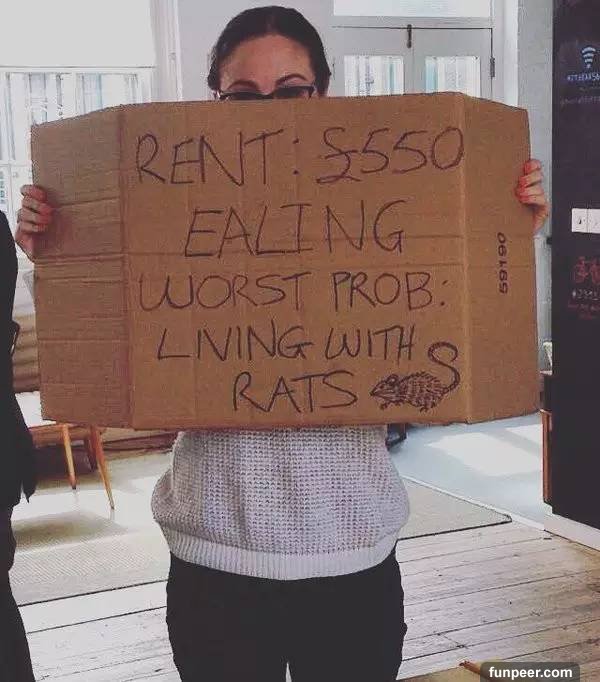 RENT: £550
EALING
WORST PROB:
LIVING WITH
RATS
59190
funpeer.com